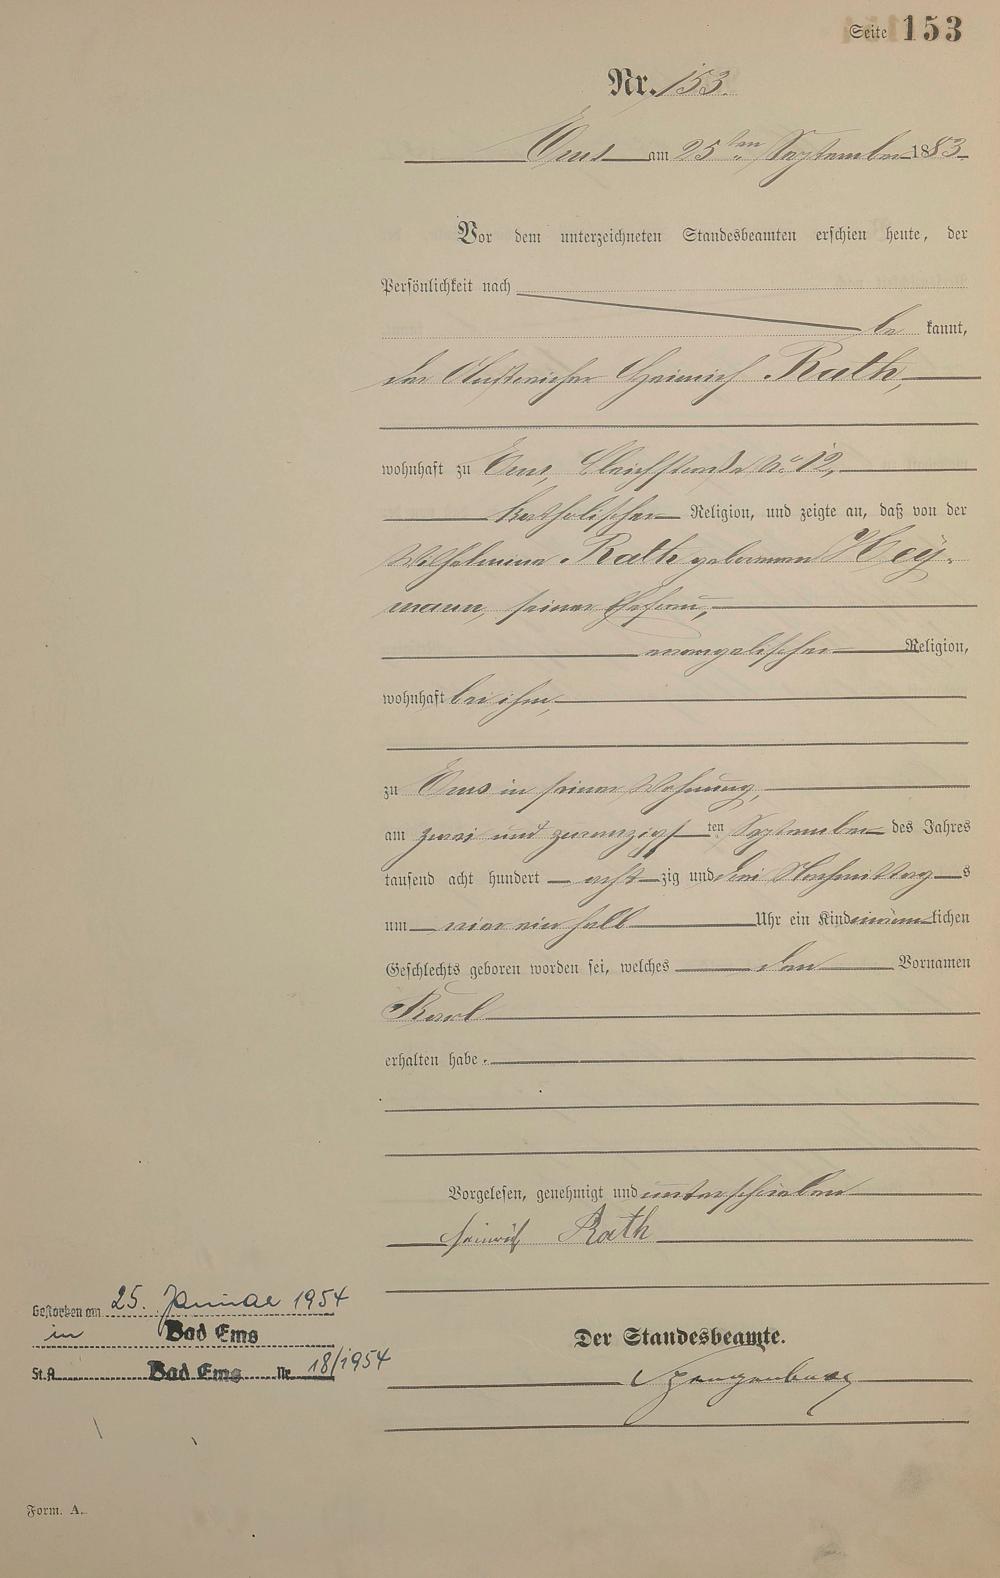 Seite 153
Nr. 153.
Ems am 25ten September 1883
Vor dem unterzeichneten Standesbeamten erschien heute, der
Persönlichkeit nach
be kannt,
der Anstreicher Heinrich Rath,
wohnhaft zu Ems, Bleichstraße No 12,
katholischer Religion, und zeigte an, daß von der
Wilhelmina Rath geborenen Hey-
mann, seiner Ehefrau,
evangelischer Religion,
wohnhaft bei ihm,
zu Ems in seiner Wohnung,
am zwei und zwanzigsten September des Jahres
tausend acht hundert achtzig und drei Nachmittags
um vier ein halb Uhr ein Kind männlichen
Geschlechts geboren worden sei, welches den Vornamen
Karl
erhalten habe.
Vorgelesen, genehmigt und unterschrieben
Heinrich Rath
Gestorben am 25. Januar 1954
in Bad Ems
St.A. Bad Ems Nr. 18/1954
Der Standesbeamte.
Form. A.